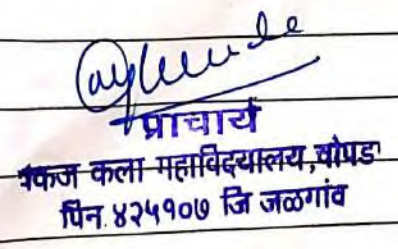 प्राचार्य
पंकज कला महाविद्यालय,चोपडा
पिन. ४२५१०७ जि जळगांव